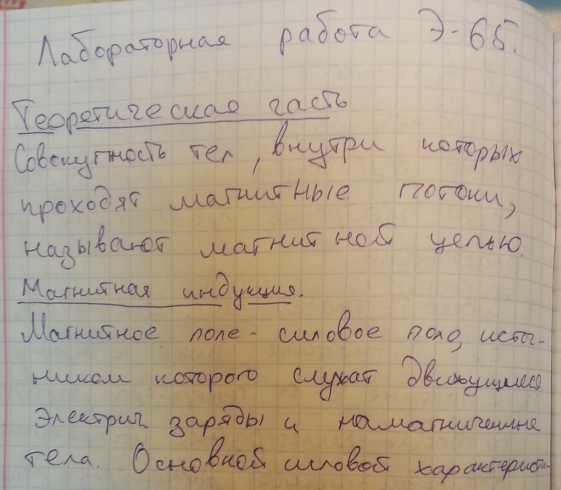 Лабораторная работа Э-65.
Теоретическая часть
Совокупность тел, внутри которых
проходят магнитные потоки,
называют магнитной цепью.
Магнитная индукция.
Магнитное поле - силовое поле, источ-
ником которого служат движущиеся
электрич заряды и намагниченные
тела. Основной силовой характерист-